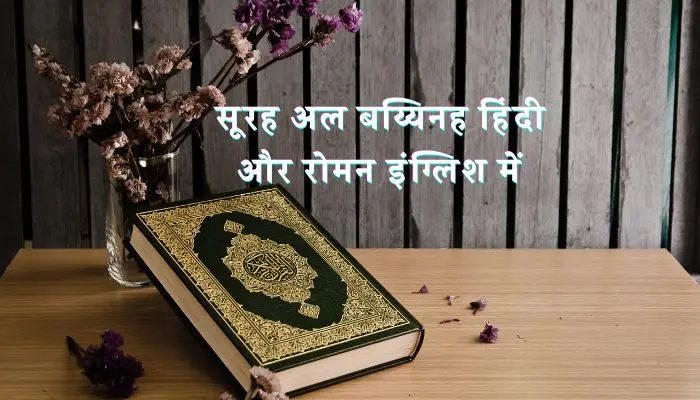 सूरह अल बय्यिनह हिंदी
और रोमन इंग्लिश में